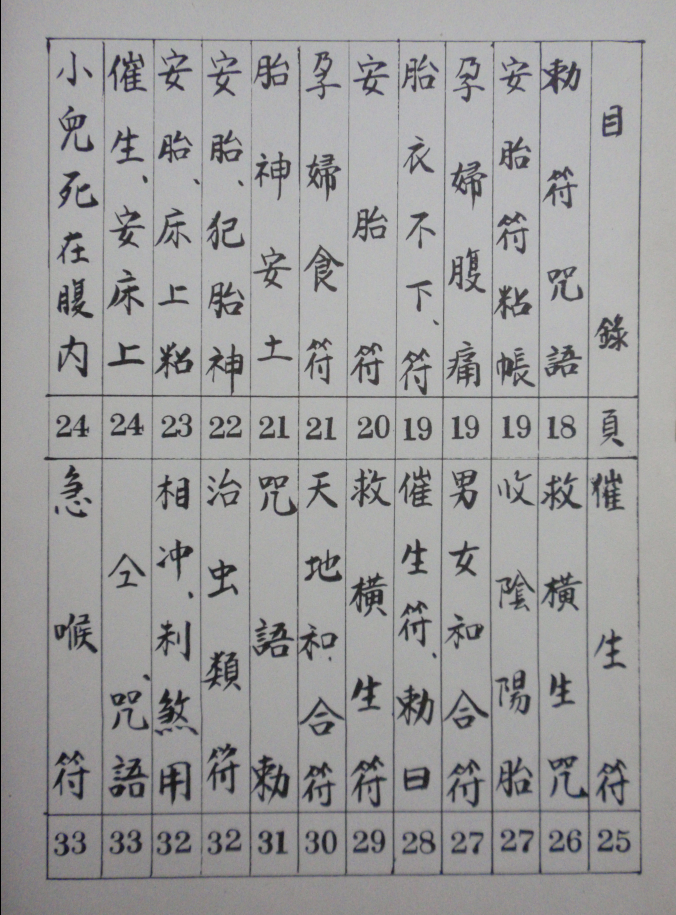 目錄 頁
勅符咒語 18
安胎符粘帳 19
孕婦腹痛 19
胎衣不下、符 19
安胎符 20
孕婦食符 21
胎神安土 21
安胎、犯胎神 22
安胎、床上粘 23
催生、安床上 24
小兒死在腹內 24
催生符 25
救橫生咒 26
收陰陽胎 27
男女和合符 27
催生符、勅曰 28
救橫生符 29
天地和合符 30
咒語勅 31
治虫類符 32
相冲、刹煞用 32
仝、咒語 33
急喉符 33